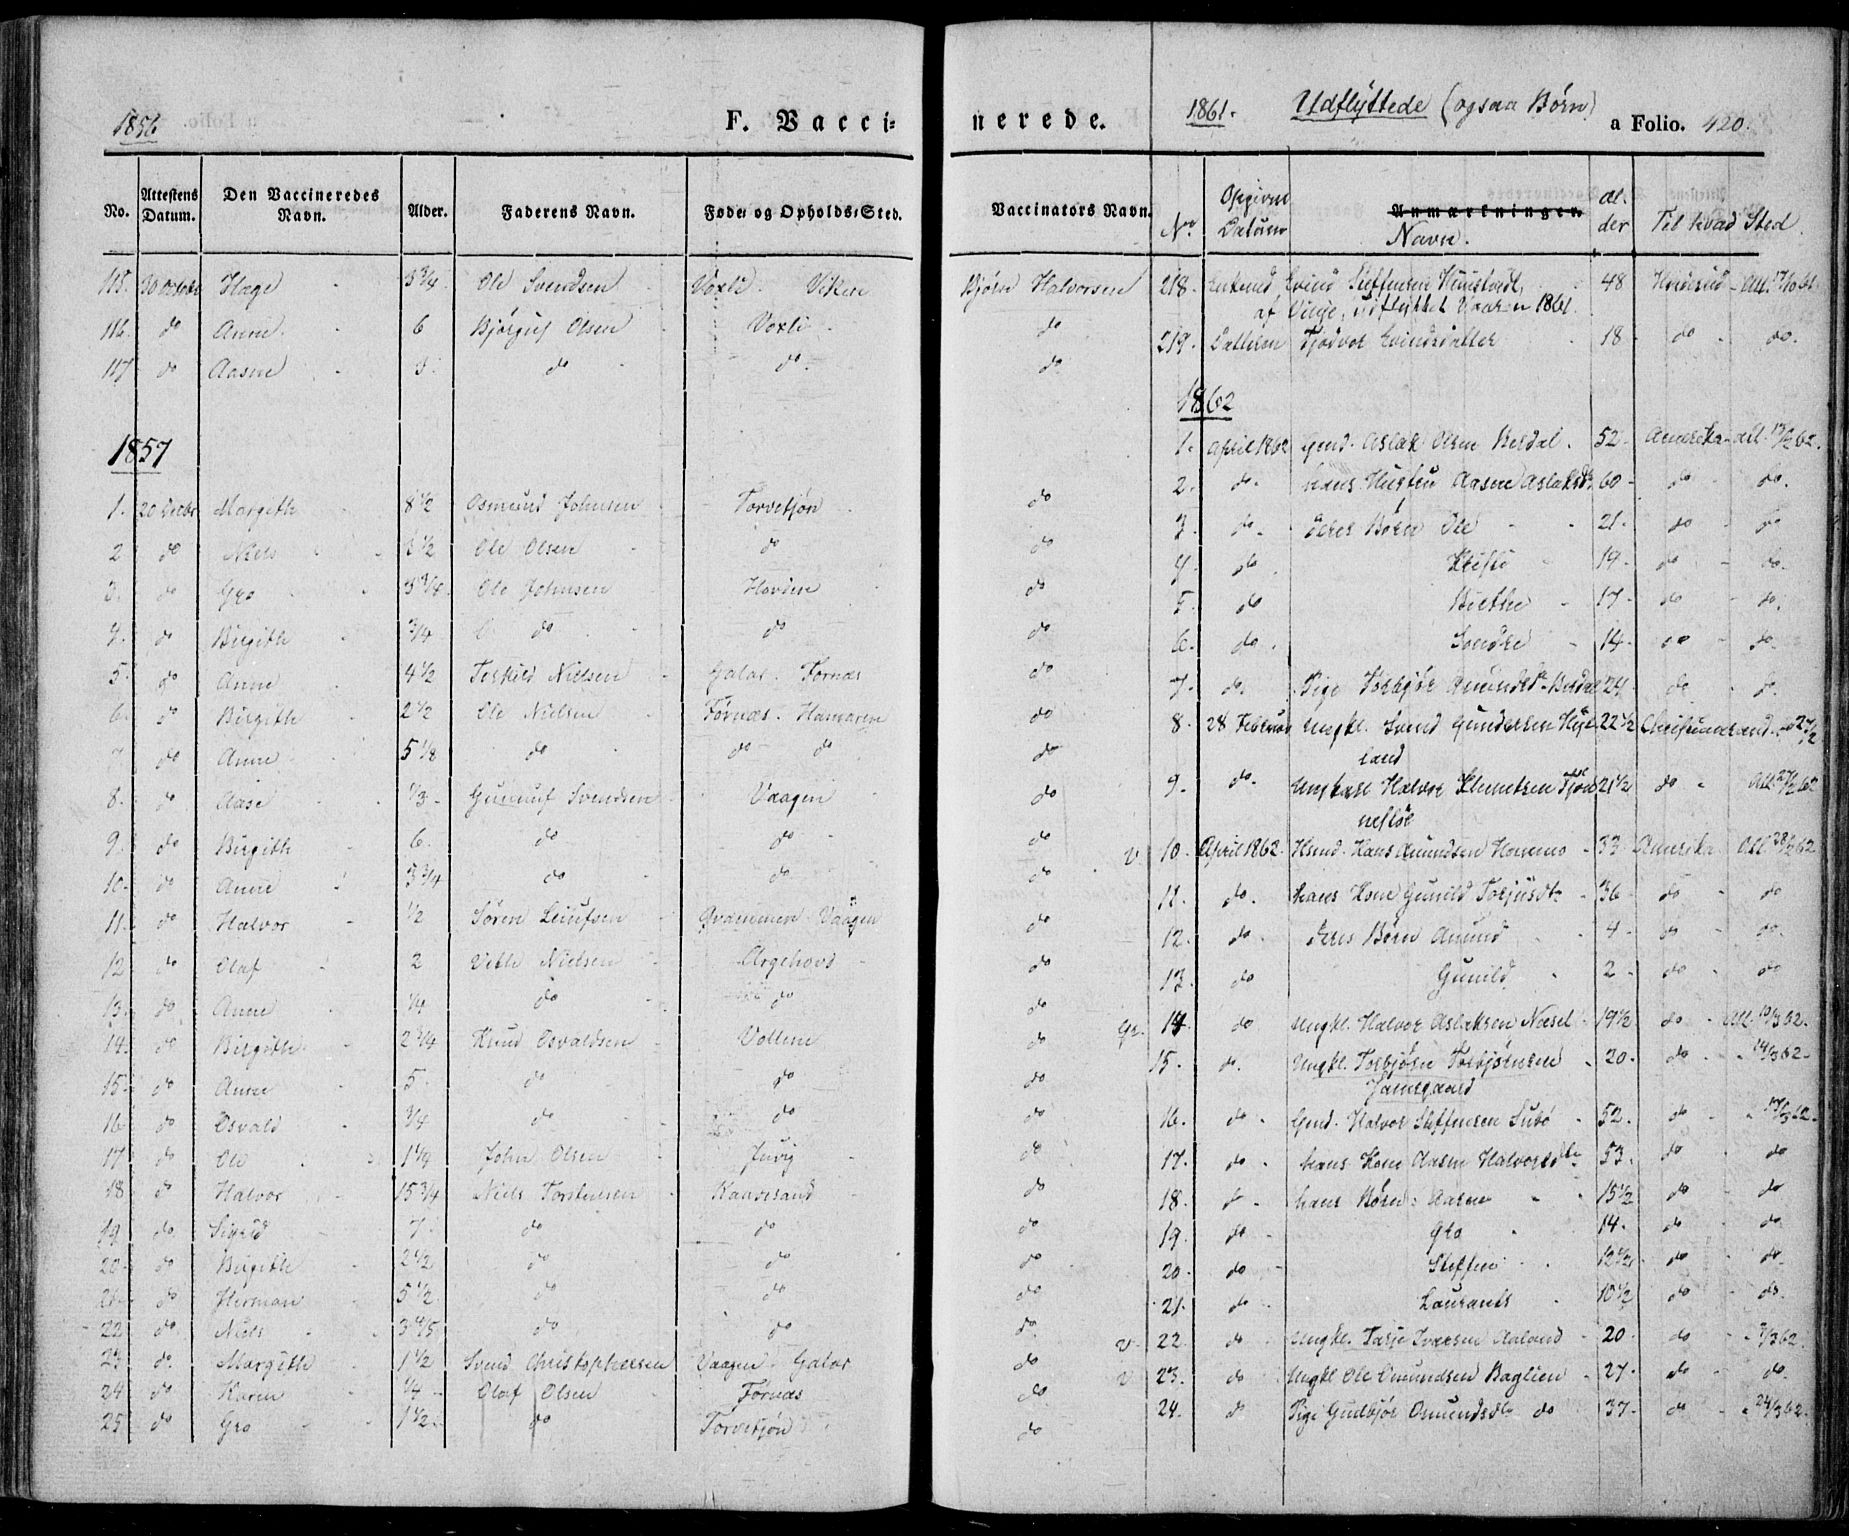 1856 F. Vacci-
No. Attestens Datum. Den Vaccineredes Navn. Alder. Faderens Navn. Føde- og Opholds-Sted.
115. 30 Octobr Hæge 3 3/4 Ole Svendsen Voxli. Viken
116. do Anne 6 Bjørguf Olsen Voxli
117 do Aasne 3 do do
1857
1. 20 Octbr Margith 8 1/2 Osmund Johnsen Torvetjøn
2 do Niels 3 1/2 Ole Olsen do
3. do Gro Ole Johnsen Hovden
4. do Birgith 3/4 do do
5. do Anne 4 1/2 Torkild Nielsen Galar. Førnæs
6. do Birgith 2 1/2 Ole Nielsen Førnæs. Hamaren
7 do Anne 5 1/8 do do do
8. do Aase 1/3 Gunnuf Svendsen Vaagen
9. do Birgith 6. do do
10. do Anne 3 3/4 do do
11. do Halvor 1/2 Søren Leiufsen Qvammen Vaagen
12 do Olaf 2 Vetle Nielsen Argehovd
13. do Anne 1/4 do do
14. do Birgith 2 3/4 Knud Osvaldsen Vollene
15. do Anne 5. do do
16 do Osvald 3/4 do do
17 do Ole 1 1/4 John Olsen Juvig
18 do Halvor 15 3/4 Niels Torsteinsen Raavesand
19 do Sigrid 7. do do
20 do Birgith 2 1/2 do do
21 do Herman 5 1/2 do do
22 do Niels 3 4/5 do do
23 do. Margith 1 1/2 Svend Christophersen Vaagen. Galar
24 do Karen 1/4 Olaf Olsen Førnæs
25 do Gro 1 1/2 do Torvetjøn
nerede. 1861. Udflyttede (ogsaa Børn) a Folio. 420.
Vaccinators Navn. No. Opgivne Datum Anmærkninger. Navn. al-der Til hvad Sted.
Bjørn Halvorsen 218. Enkmd Eivind Steffensen 48 Hviteseid - Att.
af Vinje, udflyttet Vaaren 1861.
do 219. Datteren Tjodvor Eivindsdatter 18 do do.
do
1862
1. April 1862 Gmd. Aslak Olsen Berdal. 52 Amerika - Att. 13/2 62.
do 2. do. hans Hustru Aasne Aslaksdr 60 do do.
do 3. do. deres Børn Ole 21. do do
do 4. do Kristi 19. do do.
do 5. do Birthe 17 do do.
do 6. do. Sondre 14. do do.
do 7. do. Pige Torbjør Amundsdr Berdal 24. do do.
do 8. 28 Februar Ungkl. Svend Gundersen Hyl- 22 1/2 Christiansand 27/2
do land
do 9. do. Ungkarl Halvor Klemetsen Tjøn 21 1/2 do Att. 27/2 62
nesløs
do v. 10. April 1862. Hsmd. Hans Amundsen Hommo 33 Amerika Att 28/2 62
do 11. do. hans Kone Gunild Torjusdr 36 do do
do 12. do. deres Børn Amund 4 do do.
do 13. do Gunild 2 do do
do 14. do Ungkl. Halvor Aslaksen Næsel 19 1/2 do Att. 10/3 62.
do 15. do. Ungkl. Torbjørn Torbjørnsen 20. do 14/3 62
Jamsgaard
do 16. do Gmd. Halvor Steffensen Subø 52. do 17/3 62
do 17. do hans Kone Aasne Halvorsdtr 53. do do
do 18. do hans Børn: Aasne 15 1/2 do do
do 19. do Gro 14. do do
do 20. do Steffen 12 1/2 do do
do 21. do Laurants 10 1/2 do do.
do v. 22. do Ungkl. Tarje Iversen Aaland 20 do 7/3 62.
do v 23. do Ungkl Ole Omundsen Baglien 27. do do.
do 24. do Pige Gudbjør Omundsdtr do 37. do 24/3 62.
do